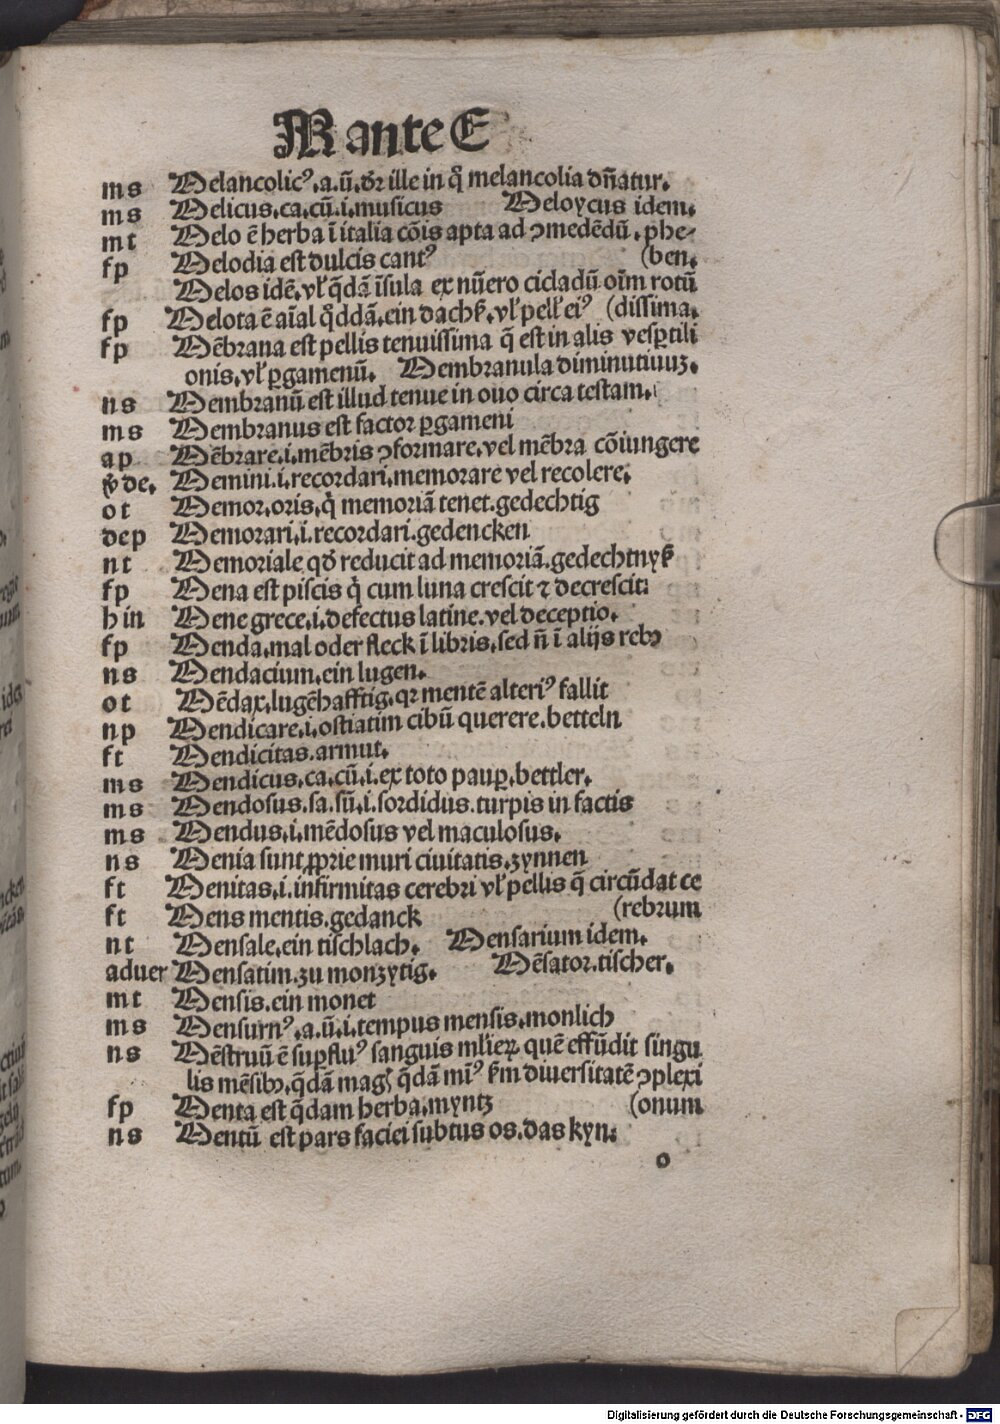 M ante E
ms Melancolicꝰ.a.ū.dr̄ ille in q̊ melancolia dn̄atur.
ms Melicus.ca.cū.i.musicus Meloycus idem.
mt Melo ē herba ī italia cōis apta ad ꝯmedēdū.phe⸗
fp Melodia est dulcis cantꝰ (ben.
Melos idē.vl' q̄dā īsula ex nūero cicladū oīm rotū
fp Melota ē aīal q̊ddā.ein dachß.vl' pell' eiꝰ (dissima.
fp Mēbrana est pellis tenuissima q̄ est in alis vesꝑtili
onis.vl' ꝑgamenū. Membranula diminutiuuꝫ.
ns Membranū est illud tenue in ouo circa testam.
ms Membranus est factor ꝑgameni
ap Mēbrare.i.mēbris ꝯformare.vel mēbra cōiungere
v̄ de. Memini.i.recordari.memorare vel recolere.
ot Memor.oris.q̇ memoriā tenet.gedechtig
dep Memorari.i.recordari.gedencken
nt Memoriale qd̄ reducit ad memoriā.gedechtnyß
fp Mena est piscis q̇ cum luna crescit ⁊ decrescit:
h in Mene grece.i.defectus latine.vel deceptio.
fp Menda.mal oder fleck ī libris.sed n̄ ī alijs rebꝰ
ns Mendacium.ein lugen.
ot Mēdax.lugēhafftig.qꝛ mentē alteriꝰ fallit
np Mendicare.i.ostiatim cibū querere.betteln
ft Mendicitas.armut.
ms Mendicus.ca.cū.i.ex toto pauꝑ.bettler.
ms Mendosus.sa.sū.i.sordidus.turpis in factis
ms Mendus.i.mēdosus vel maculosus.
ns Menia sunt ꝓprie muri ciuitatis.zynnen
ft Menitas.i.infirmitas cerebri vl' pellis q̄ circūdat ce
ft Mens mentis.gedanck (rebrum
nt Mensale.ein tischlach. Mensarium idem.
aduer Mensatim.zu monzytig. Mēsator.tischer.
mt Mensis.ein monet
ms Mensurnꝰ.a.ū.i.tempus mensis.monlich
ns Mēstruū ē suꝑfluꝰ sanguis ml'ieꝝ quē effūdit singu
lis mēsibꝰ.q̄dā magꝭ q̄dā mīꝰ ßm diuersitatē ꝯplexi
fp Menta est q̄dam herba.myntz (onum
ns Mentū est pars faciei subtus os.das kyn.
o
Digitalisierung gefördert durch die Deutsche Forschungsgemeinschaft - DFG